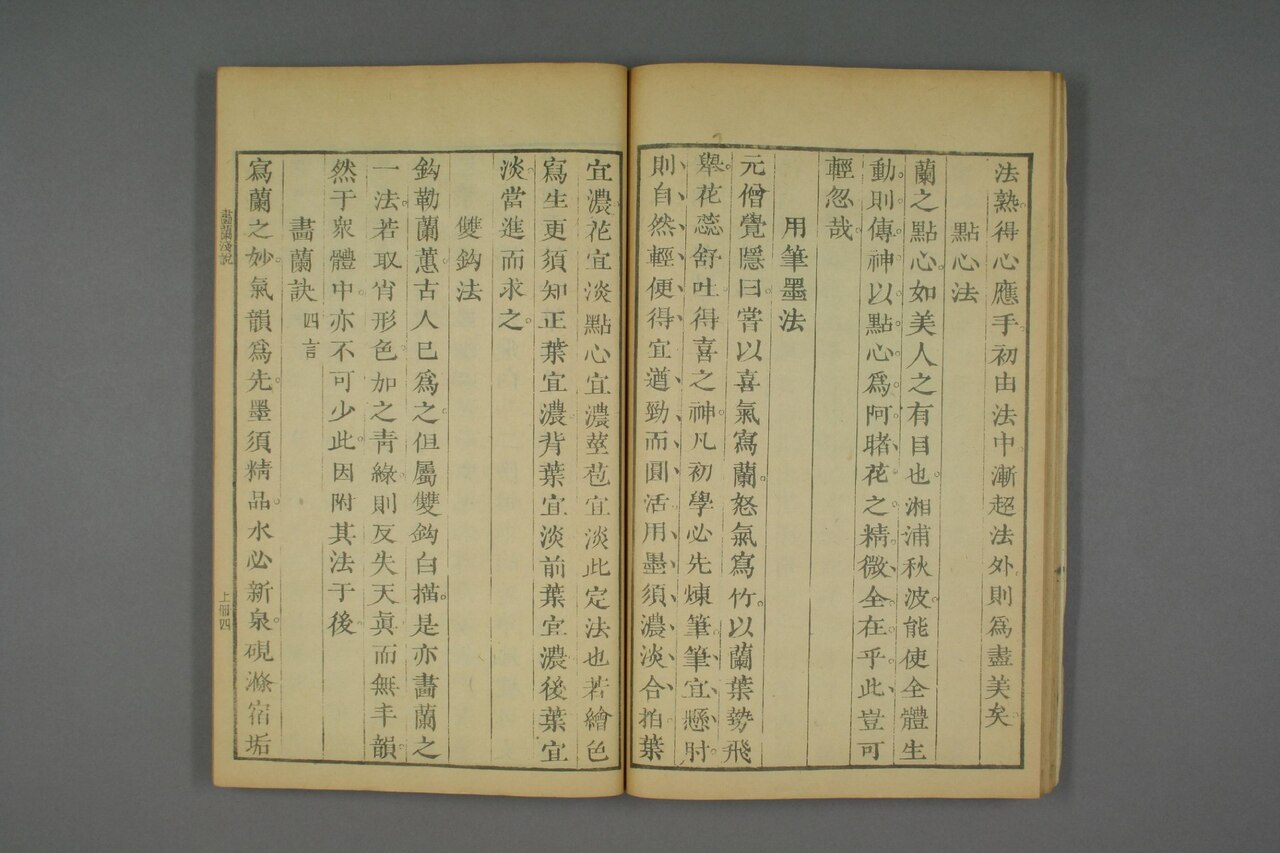 法熟得心應手。初由法中漸超法外則爲盡美矣。
點心法
蘭之點心。如美人之有目也。湘浦秋波。能使全體生
動。則傳神。以點心爲阿睹。花之精微。全在乎此。豈可
輕忽哉。
用筆墨法
元僧覺隱曰。嘗以喜氣寫蘭。怒氣寫竹。以蘭葉勢飛
舉。花蕊舒吐。得喜之神。凡初學必先煉筆。筆宜懸肘。
則自然輕便得宜。遒勁而圓活。用墨須濃淡合拍。葉
宜濃。花宜淡。點心宜濃。莖苞宜淡。此定法也。若繪色
寫生。更須知正葉宜濃。背葉宜淡。前葉宜濃。後葉宜
淡。當進而求之。
雙鈎法
鈎勒蘭蕙。古人已爲之。但屬雙鈎白描。是亦畫蘭之
一法。若取肖形色。加之青綠。則反失天眞而無丰韻。
然于衆體中。亦不可少此。因附其法于後
畫蘭訣 四言
寫蘭之妙。氣韻爲先。墨須精品。水必新泉。硯滌宿垢
畫蘭淺說
上冊四